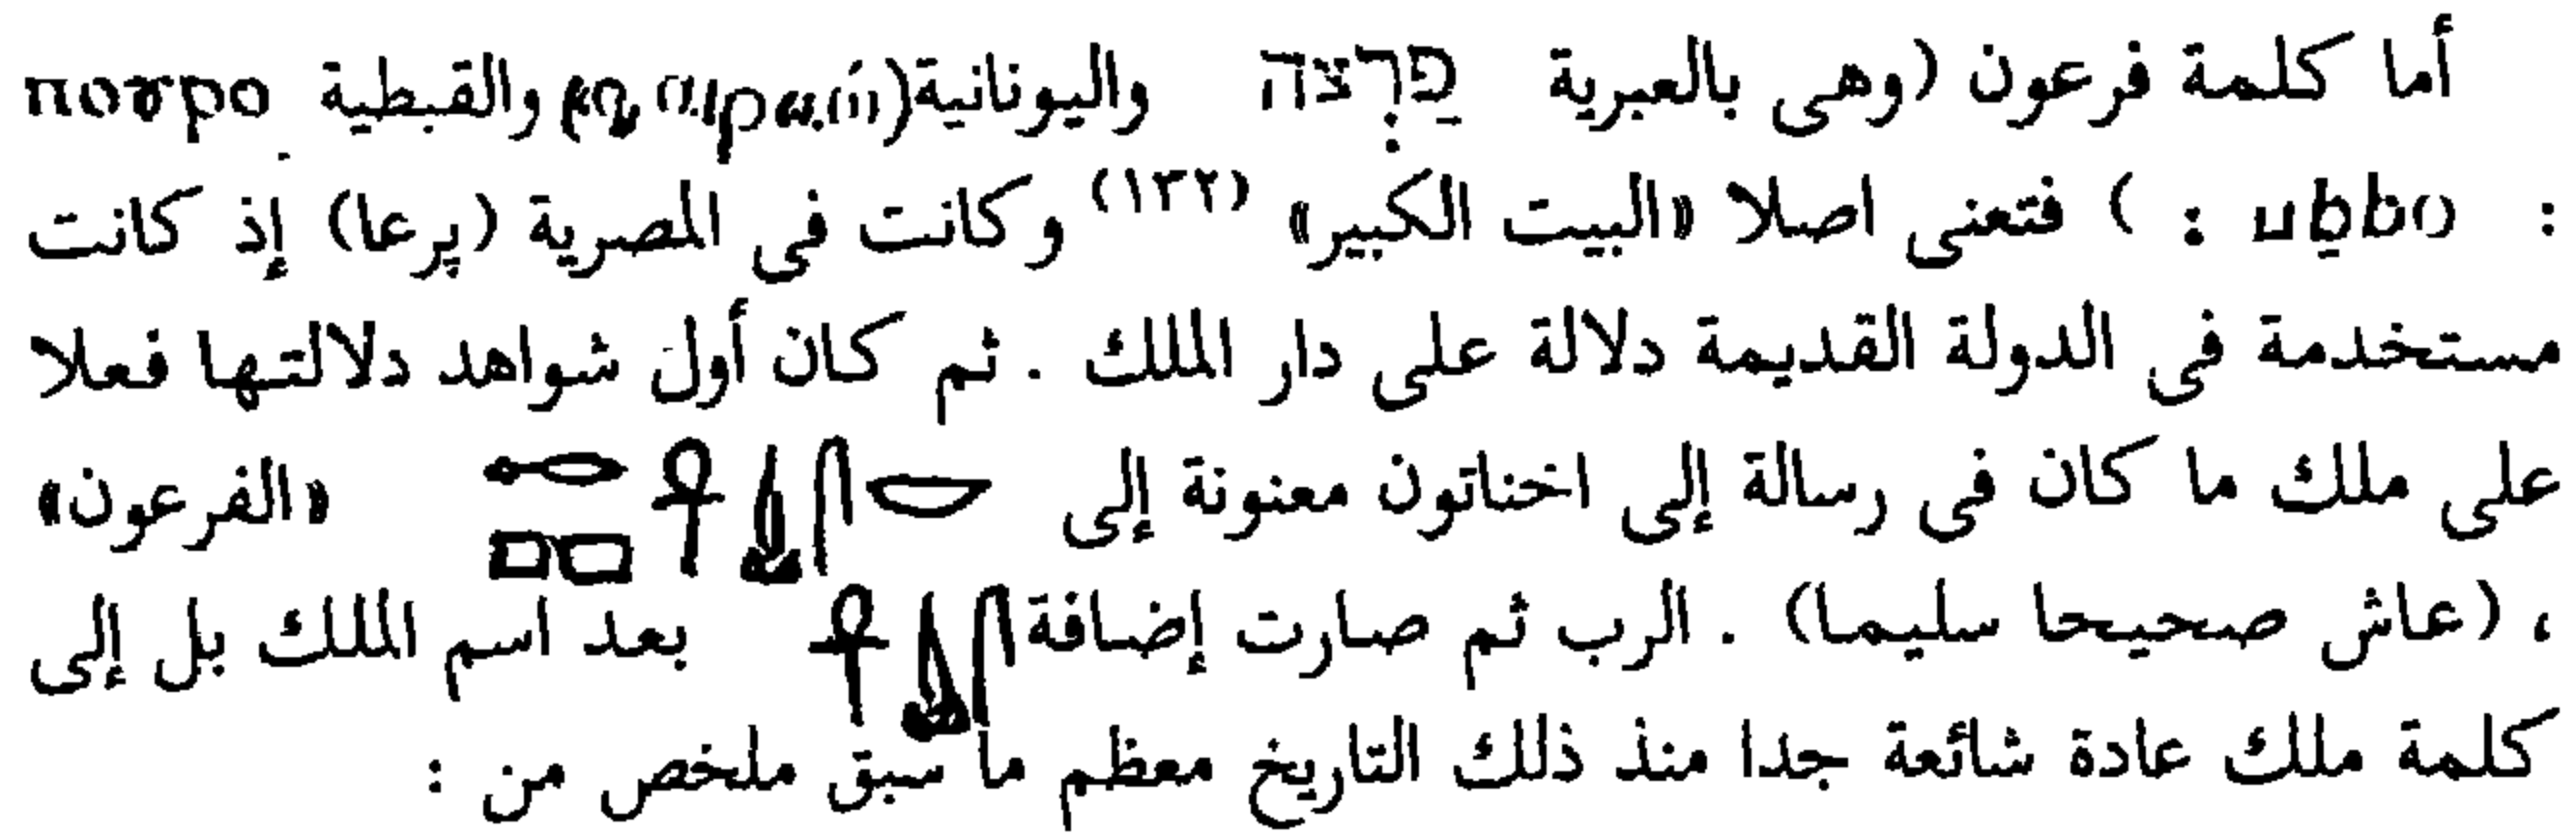 أما كلمة فرعون (وهى بالعبرية פרצה واليونانية( والقبطية ⲡⲟⲩⲣⲟ
: ⲡ̅ⲣ̅ⲣⲟ : ) فتعنى اصلا «البيت الكبير» (١٣٢) وكانت فى المصرية (پرعا) إذ كانت
مستخدمة فى الدولة القديمة دلالة على دار الملك . ثم كان أول شواهد دلالتها فعلا
على ملك ما كان فى رسالة إلى اخناتون معنونة إلى 𓉐𓉻𓋹𓍑𓋴𓎟 «الفرعون»
، (عاش صحيحا سليما) . الرب ثم صارت إضافة 𓋹𓍑𓋴 بعد اسم الملك بل إلى
كلمة ملك عادة شائعة جدا منذ ذلك التاريخ معظم ما سبق ملخص من :